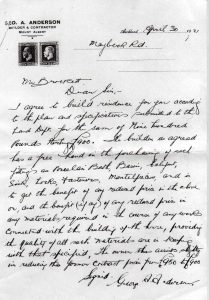 GEO. A. ANDERSON
BUILDER & CONTRACTOR
MOUNT ALBERT
April 30 1921
Maybeck Rd.
Mr
Dear Sir
I agree to build residence for you according
to the plans and specifications submitted to the
for the sum of Nine hundred
Pounds £900. The builder is agreed
has a free hand in the purchasing of
fittings as Porcelain Bath, Basin,
Sink, Mantelpieces, and is
to get the benefit of any reduced price in the above
or, and the benefit of any reduced price in
any materials required in the course of any works
connected with the building of the house, providing
the quality of all such materials are in keeping
with that specified, the owner
in reducing the former contract price from £950 to £900
Signed
George A Anderson